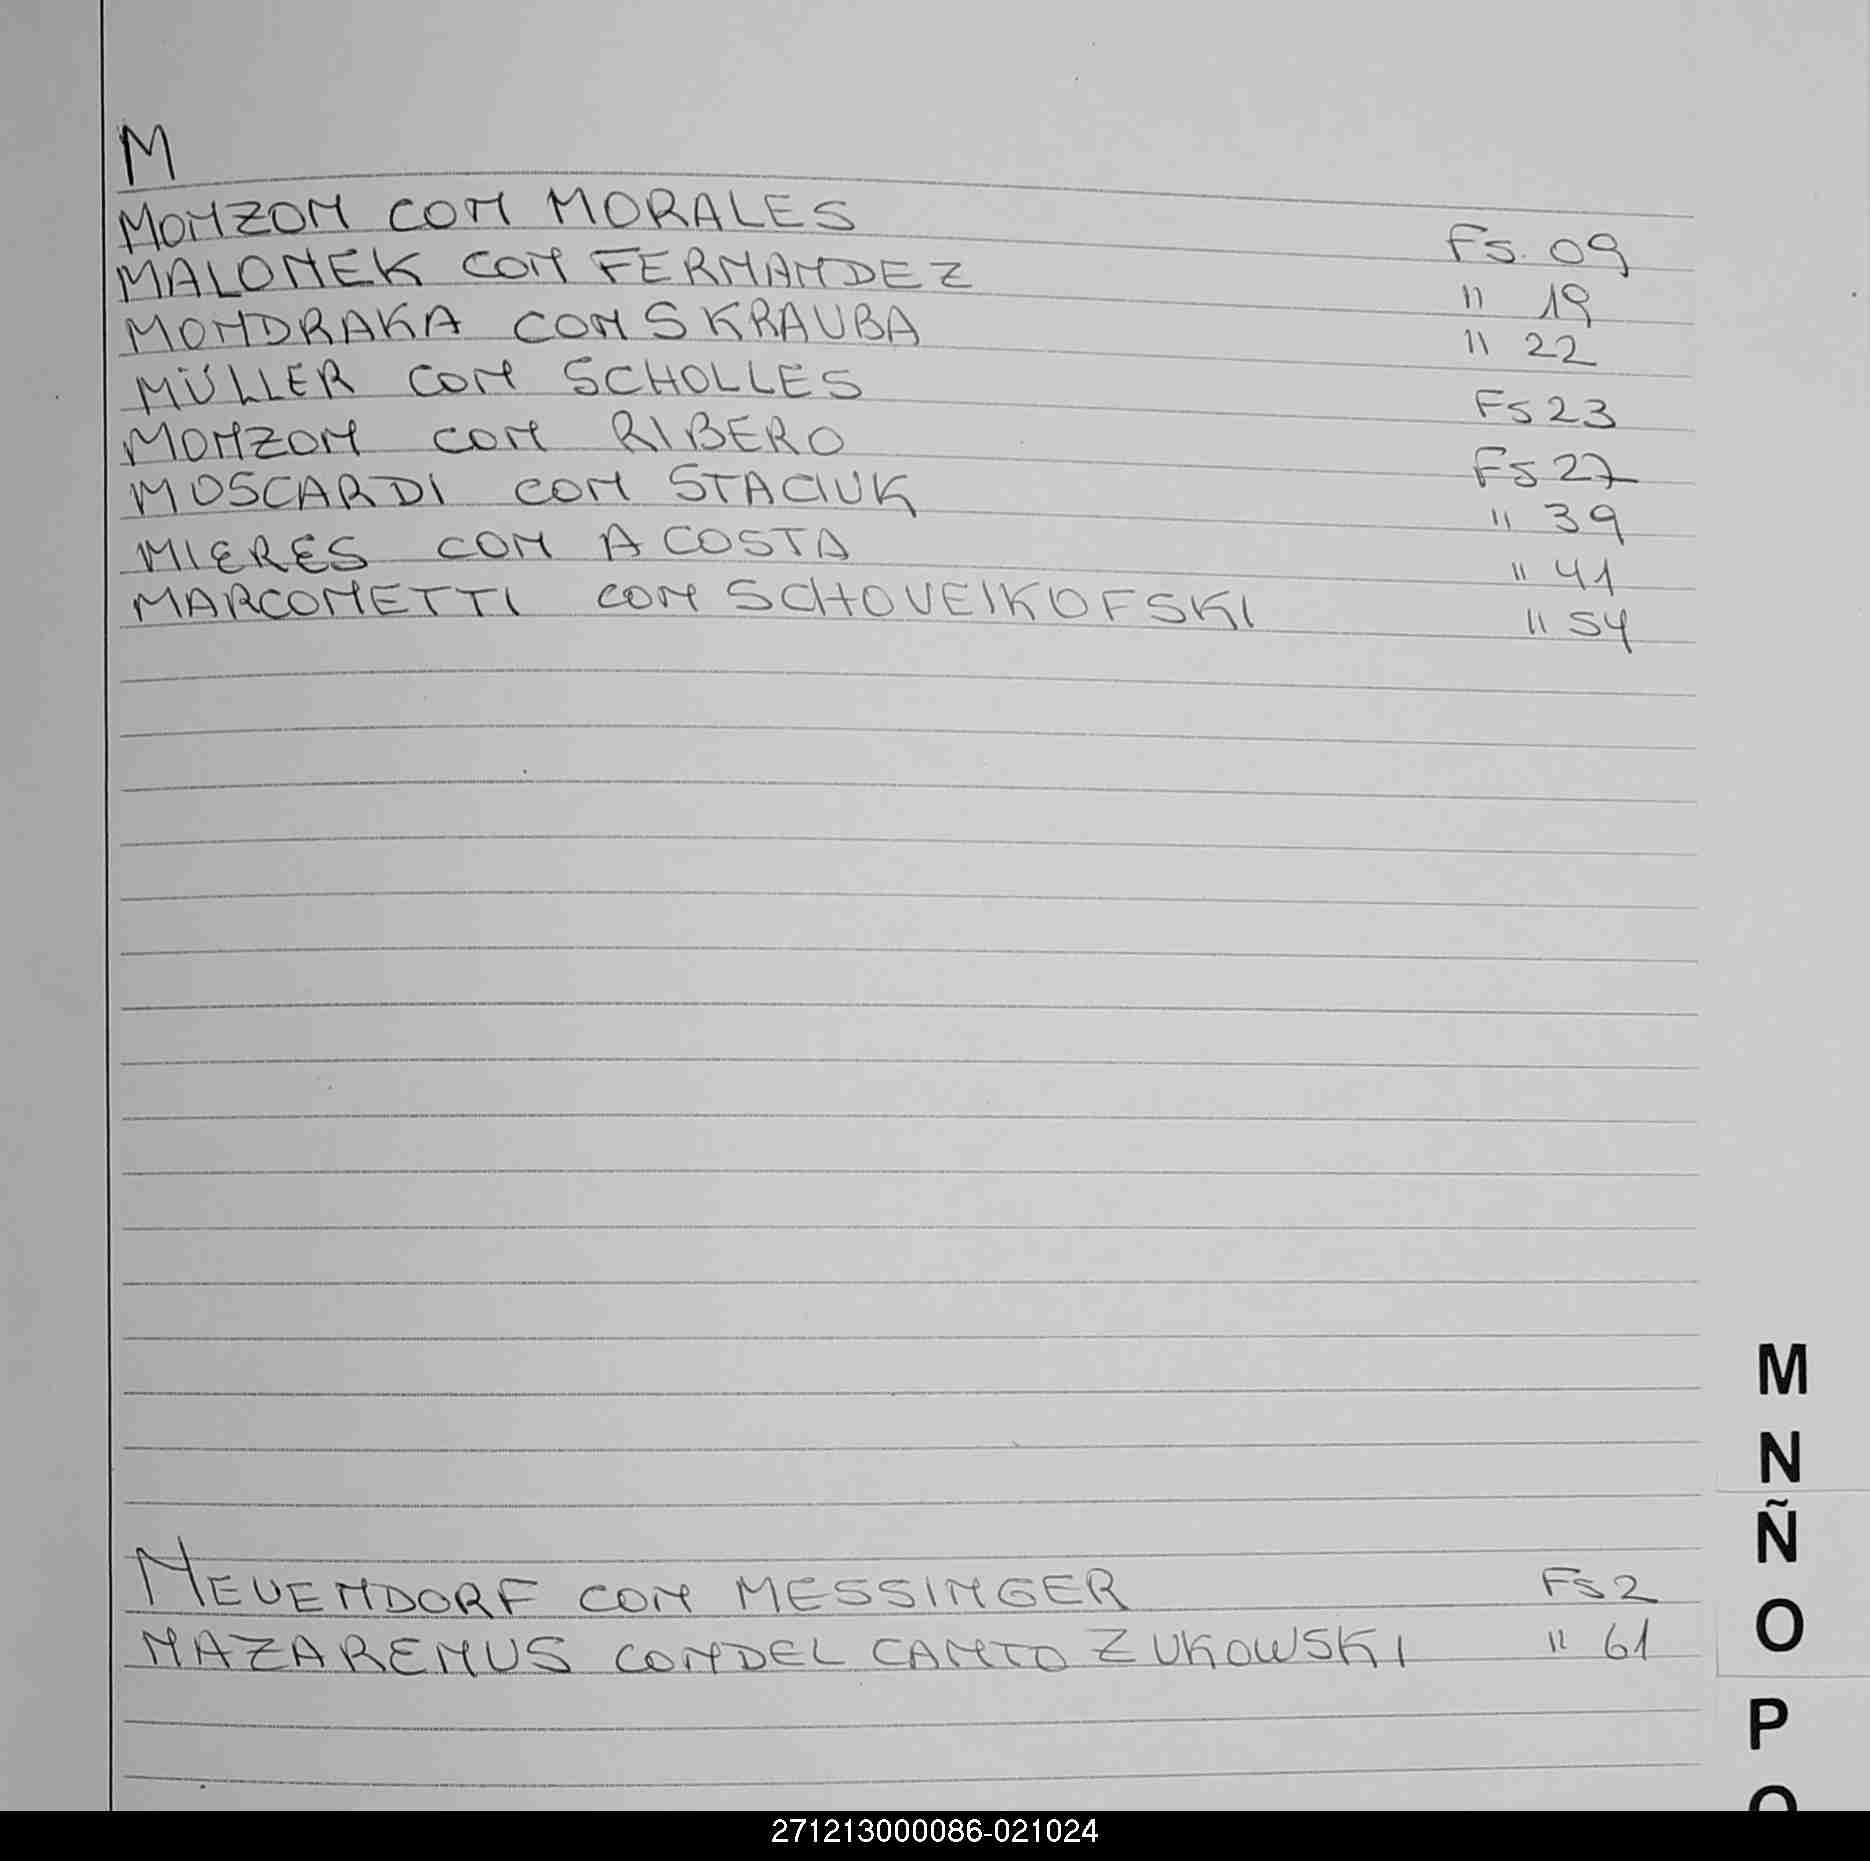 M
MONZON CON MORALES Fs. 09
MALONEK CON FERNANDEZ " 19
MONDRAKA CON SKRAUBA " 22
MÜLLER CON SCHOLLES Fs 23
MONZON CON RIBERO Fs 27
MOSCARDI CON STACIUK " 39
MIERES CON ACOSTA " 41
MARCONETTI CON SCHOVEIKOFSKI " 54
M
N
Ñ
NEUENDORF CON MESSINGER Fs 2
O
NAZARENUS CON DEL CANTO ZUKOWSKI " 61
P
271213000086-021024